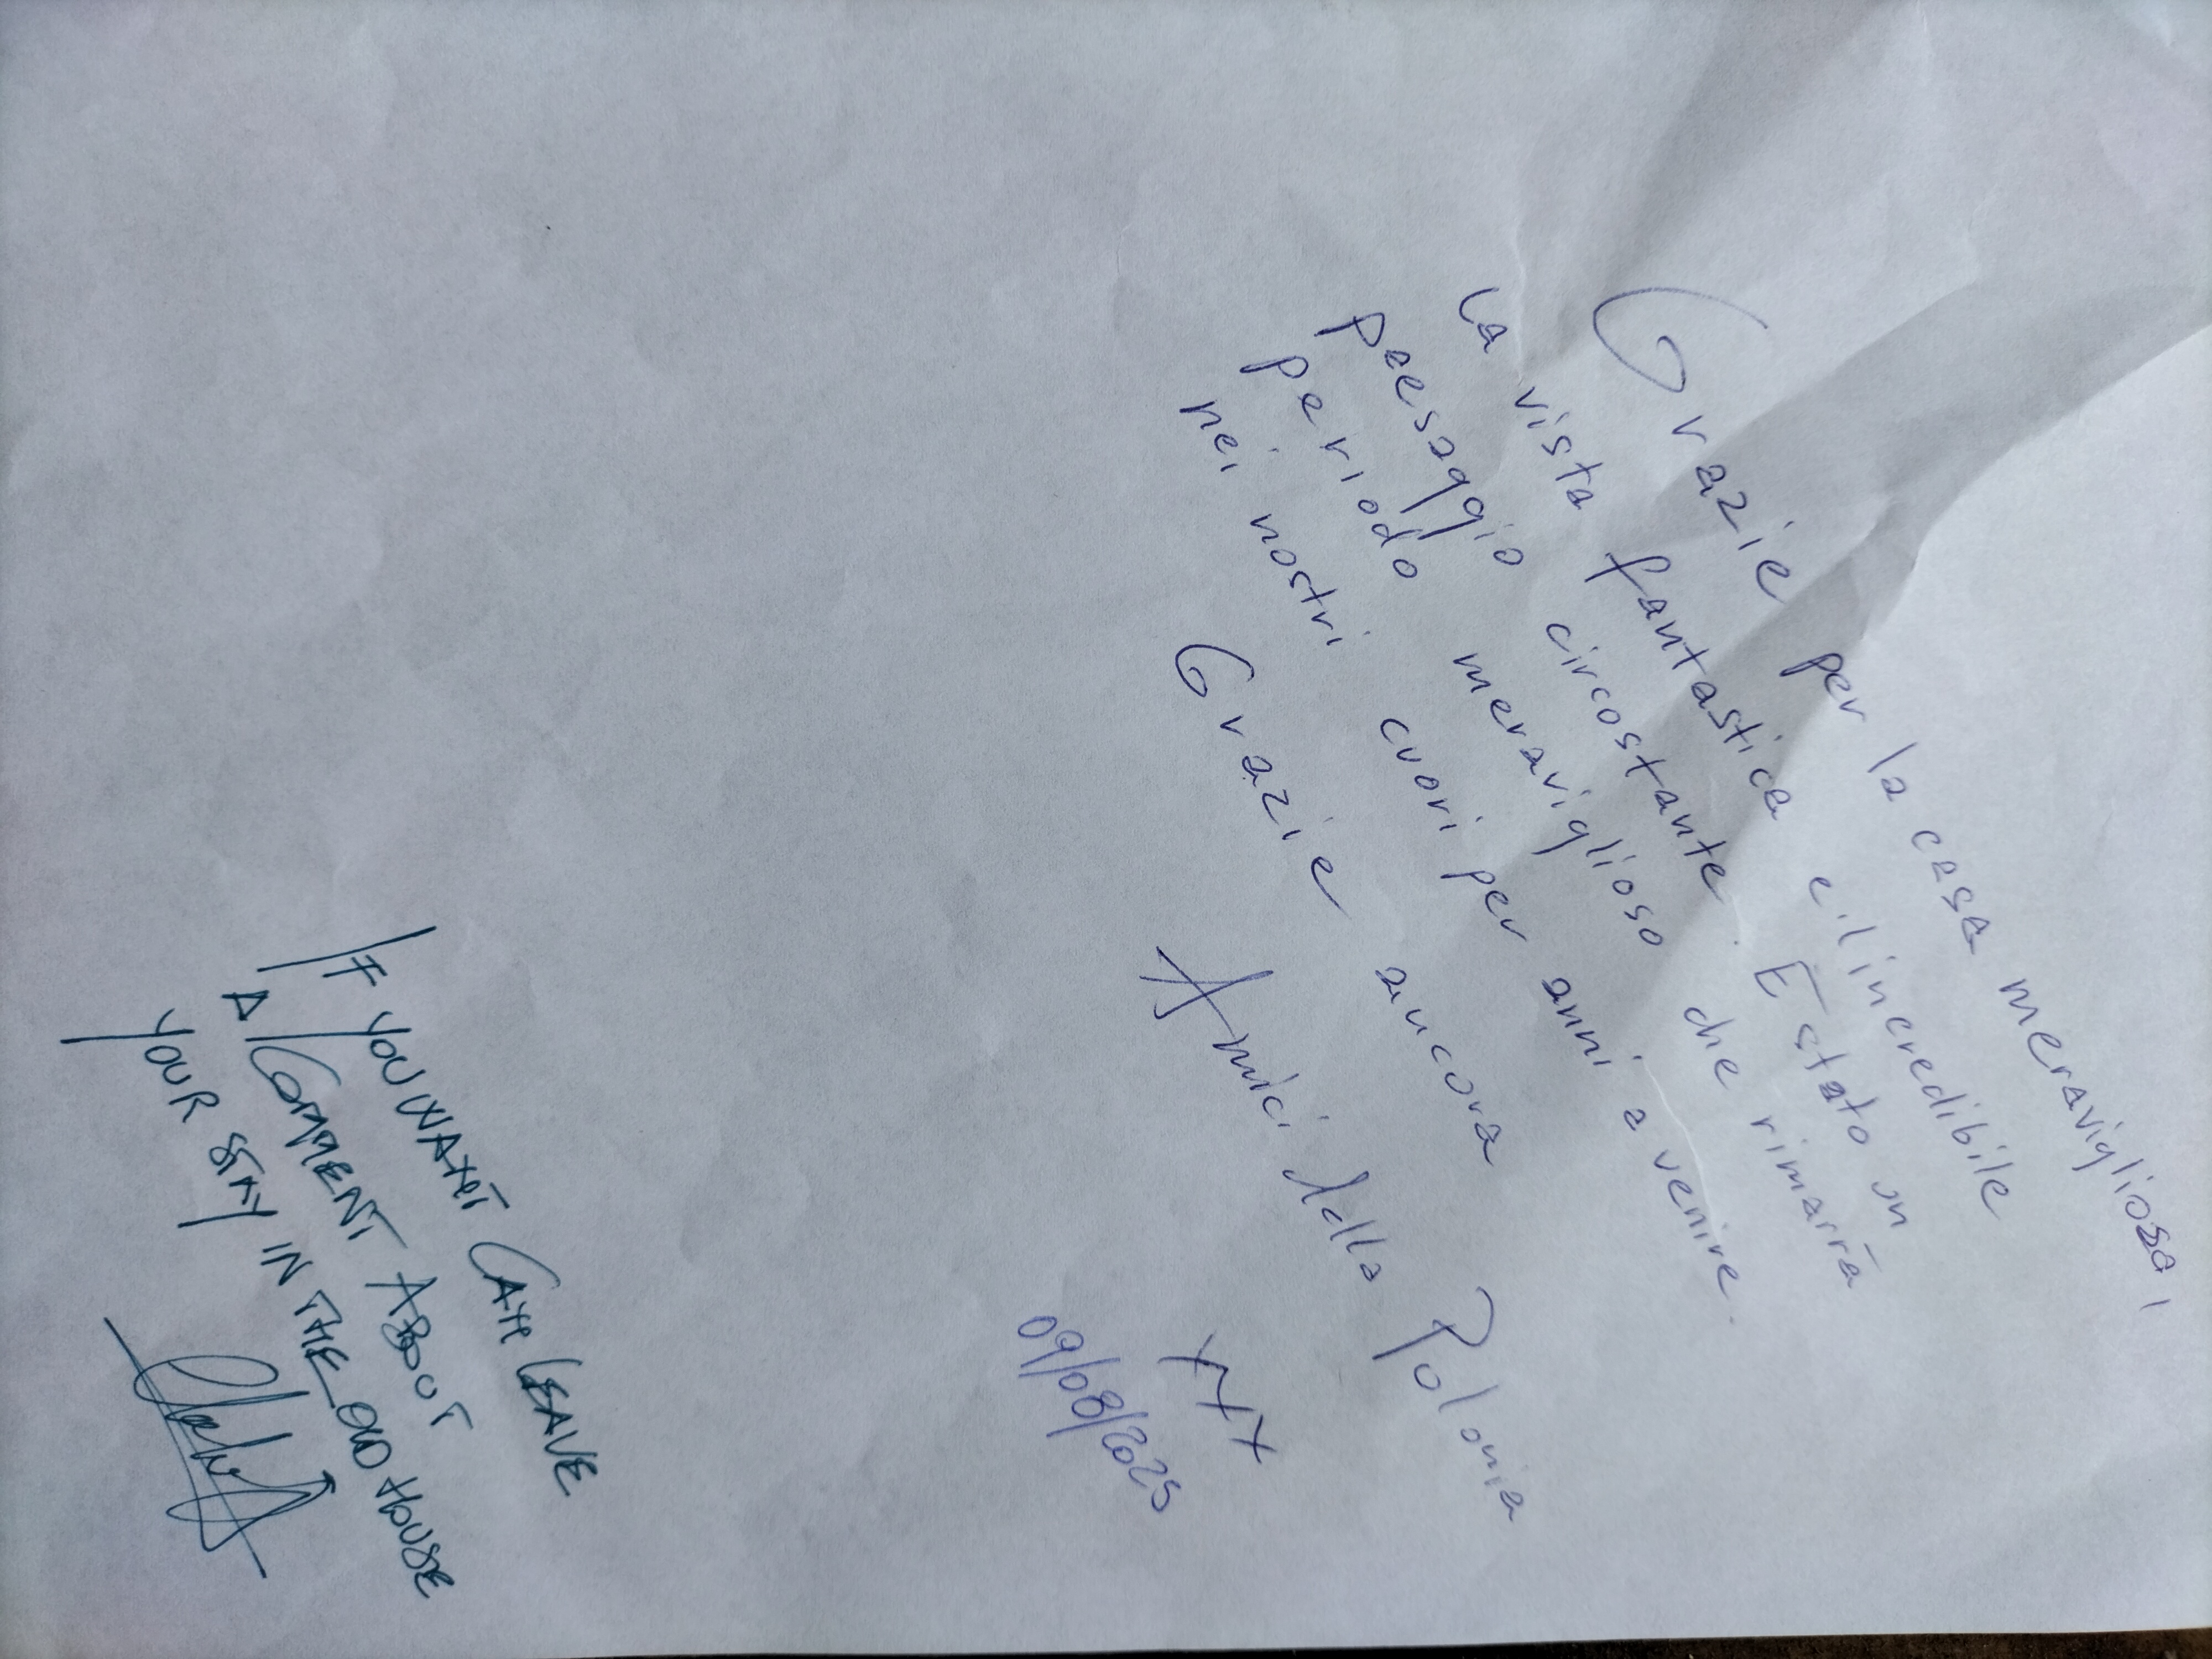 Grazie per la casa meravigliosa,
la vista fantastica e il incredibile
paesaggio circostante. E stato un
periodo meraviglioso che rimarrà
nei nostri cuori per anni a venire.
Grazie ancora
Amici della Polonia
XXX
09/08/2025
IF YOU WANT CAN LEAVE
A COMMENT ABOUT
YOUR STAY IN THE OLD HOUSE